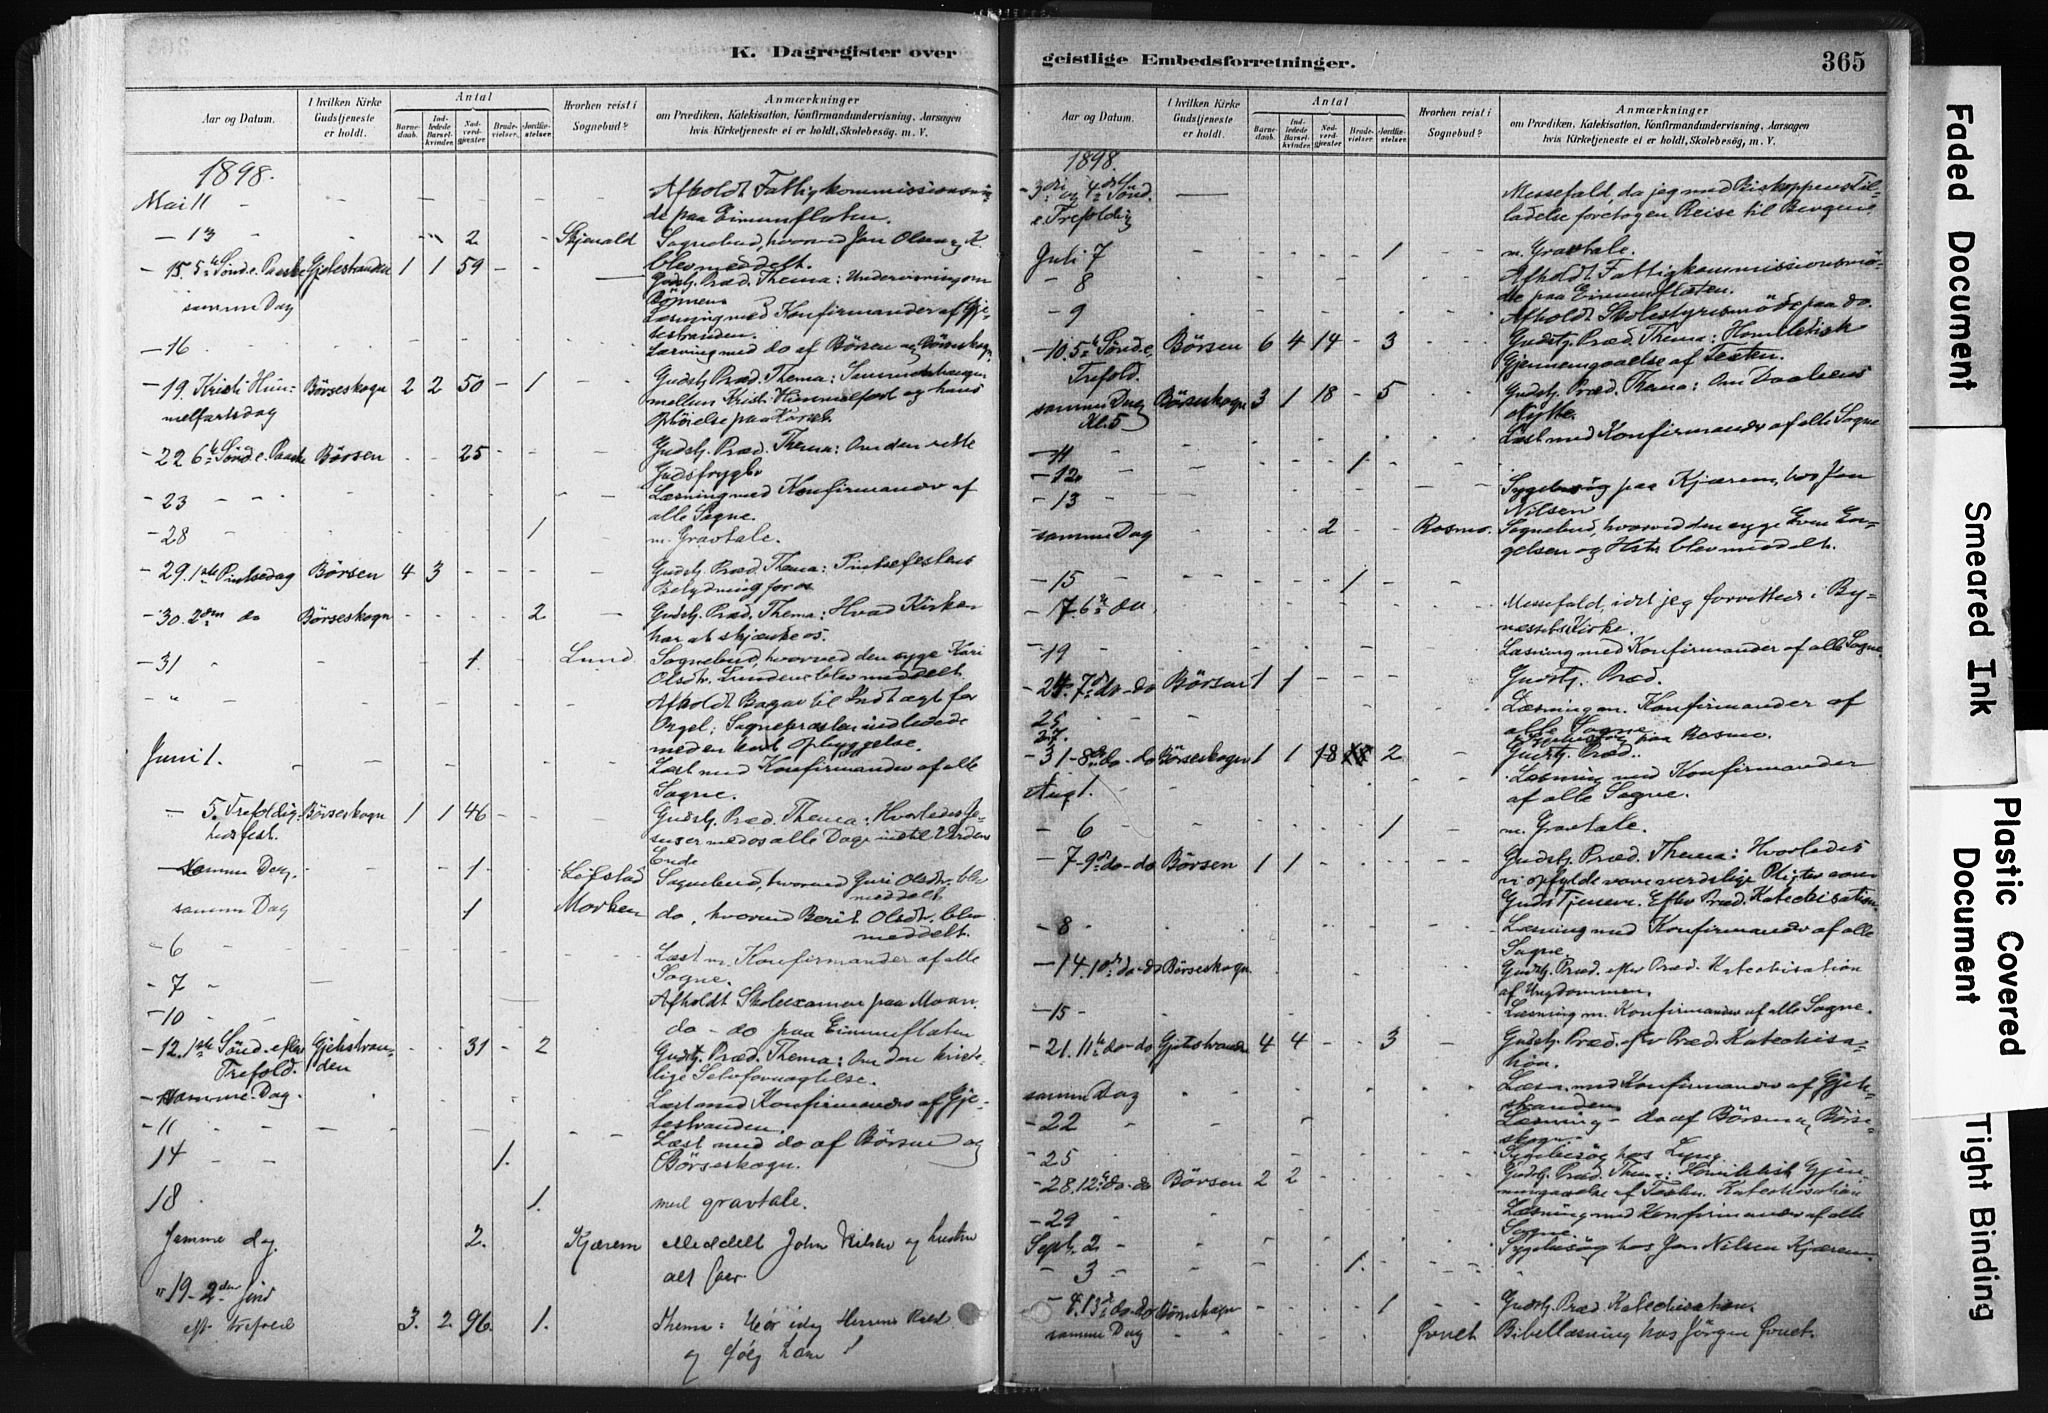 K. Dagregister over
Aar og Datum.
I hvilken Kirke Gudstjeneste er holdt.
Antal
Barnedaab.
Indledede Barselkvinder.
Nadverdgjester
Brudevielser.
Jordfæstelser.
Hvorhen reist i Sognebud?
Anmærkninger
om Prædiken, Katekisation, Konfirmandundervisning, Aarsagen
hvis Kirketjeneste ei er holdt, Skolebesög, m. V.
1898.
Mai 11 Afholdt Fattigkommissionsmö-
de paa Eimmfloten.
- 13 2 Skjenald Sognebud, hvorved Jon Olsen og K.
blev meddelt.
- 15. 5te Sønd. e. Paaske Gjetestranden 1 1 59 Gudstj. Præd. Thema: Undervisning om
Bönnen
samme Dag Læsning med Konfirmander af Gje-
testranden.
- 16 Læsning med do af Börsen og Börseskogn
- 19. Kristi Him- Börseskogn 2 2 50 - 1 Gudstj. Præd. Thema: Sammenhængen
melfartsdag mellem Kristi Himmelfart og hans
ophöielse paa Korset
- 22 6te Sönd. e. Paaske Börsen - - 25 Gudstj. Præd. Thema: Om den rette
Gudsfrygt
- 23 Læsning med Konfirmander af
alle Sogne.
- 28 1 m. Gravtale.
- 29. 1ste Pintsedag Börsen 4 3 Gudstj. Præd. Thema: Pintsefestens
Betydning for os
- 30. 2den do Börseskogn 2 Gudstj. Præd. Thema: Hvad Kirken
har at skjænke os.
- 31 1. Lund Sognebud, hvorved den syge Kari
Olsdtr. Lunden blev meddelt
- " Afholdt Bazar til Indtægt for
Orgel; Sognepræsten indledede
med en kort Opbyggelse.
Juni 1. Læst med Konfirmander af alle
Sogne.
- 5. Trefoldig- Börseskogn 1 1 46 Gudstj. Præd. Thema: Hvorledes Je-
hedsfest. sus er med os alle Dage indtil Verdens
Ende
- samme Dag. 1 Löfstad Sognebud, hvorved Guri Olsdtr. blev
meddelt
samme Dag 1 Morken do, hvorved Berit Olsdtr. blev
meddelt.
- 6 Læst m. Konfirmander af alle
Sogne.
- 7 Afholdt Skoleexamen paa Moan.
- 10 do - do paa Eimmfloten
- 12. 1ste Sönd. efter Gjetestran- 31 - 2 Gudstj. Præd. Thema: Om den kriste-
Trefold. den lige Selvfornægtelse.
- samme Dag. Læst med Konfirmander af Gje-
testranden.
- 11 Læst med do af Börsen og
14 1. Börseskogn.
18 1. med gravtale.
Samme dag. 2. Kjærem Meddelt John Nilsen og hustru
" 19 - 2den Sönd
eft. trefold 3. 2 96. 1. Thema: Hör idag Herrens Röst
og fölg ham!
geistlige Embedsforretninger.
365
Aar og Datum.
I hvilken Kirke Gudstjeneste er holdt.
Antal
Barnedaab.
Indledede Barselkvinder.
Nadverdgjester
Brudevielser.
Jordfæstelser.
Hvorhen reist i Sognebud?
Anmærkninger
om Prædiken, Katekisation, Konfirmandundervisning, Aarsagen
hvis Kirketjeneste ei er holdt, Skolebesög, m. V.
1898.
- 3die og 4de Sönd. Messefald, da jeg med Biskoppens Til-
e. Trefoldig ladelse foretog en Reise til Bergen.
Juli 7 1 m. Gravtale.
- 8 Afholdt Fattigkommissionsmö-
de paa Eimmfloten.
- 9 Afholdt Skolestyresmöde paa do.
- 10. 5te Sönd. e. Börsen 6 4 14 - 3 Gudstj. Præd. Thema: Homiletisk
Trefold. Gjennemgaaelse af Texten.
samme Dag Börseskogn 3 1 18 - 5 Gudstj. Præd. Thema: Om Daabens
Kl. 5 Nytte.
- 11 Læst med Konfirmander af alle Sogne
- 12 1.
- 13 Sygebesög paa Kjærem, hos Jon
Nilsen
samme Dag 2 Rosmo. Sognebud, hvorved den syge Even En-
gelsen og Hstr. blev meddelt.
- 15 1
- 17. 6te do Messefald, idet jeg forrettede i By-
nessets Kirke.
- 19 Læsning med Konfirmander af alle Sogne.
- 24. 7de do - do Börsen 1 1 Gudstj. Præd.
25 Læsning m. Konfirmander af
alle Sogne
27. Sygebesög paa Rosmo.
- 31 - 8de do - do Börseskogn 1 1 18 2 Gudstj. Præd.
Aug 1. Læsning med Konfirmander
af alle Sogne.
- 6 1 m. Gravtale.
- 7 - 9de do - do Börsen 1 1 Gudstj. Præd. Thema: Hvorledes
vi opfylde vore verdslige Pligter som
Guds Tjenere. Efter Præd. Katechisation.
- 8 Læsning med Konfirmander af alle
Sogne.
- 14. 10de do - do Börseskogn Gudstj. Præd. efter Præd. Katechisation
af Ungdommen.
- 15 Læsning m. Konfirmander af alle Sogne.
- 21. 11te do - do Gjetestranden 4 4 - - 3 Gudstj. Præd. efter Præd. Katechisa-
tion.
samme Dag Læsn. med Konfirmander af Gjete-
stranden
- 22 Læsning - do af Börsen og Börse-
skogn.
- 25 Sygebesög hos Lyng.
- 28. 12te do - do Börsen 2 2 Gudstj. Præd. Thema: Homiletisk Gjen-
nemgaaelse af Texten. Katechisation
- 29 Læsning med Konfirmander af alle
Sogne.
Septb. 2 Sygebesög hos Jon Nilsen Kjærem.
- 3 1.
- 4. 13de do - do Börseskogn 1 Gudstj. Præd. Katechisation.
samme Dag Övret Bibellæsning hos Jörgen Övret.
Faded Document
Smeared Ink
Plastic Covered Document
Tight Binding